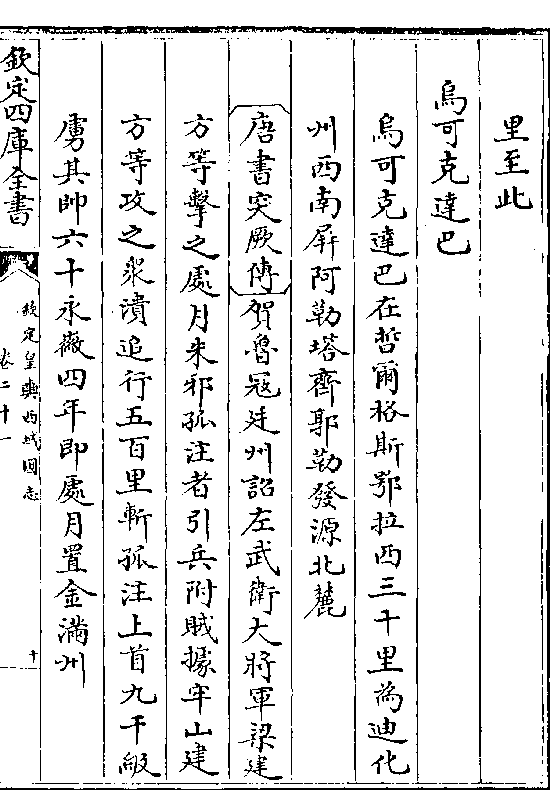 里至此
烏可克達巴
烏可克達巴在哲爾格斯鄂拉西三十里為迪化
州西南屏阿勒塔齊郭勒發源北麓
唐書突厥傳賀魯冦廷州詔左武衛大將軍梁建
方等擊之處月朱邪孤注者引兵附賊據牢山建
方等攻之衆潰追行五百里斬孤注上首九千級
虜其帥六十永徽四年即處月置金滿州
欽定四庫全書
欽定皇輿西域圖志
卷二十一
十